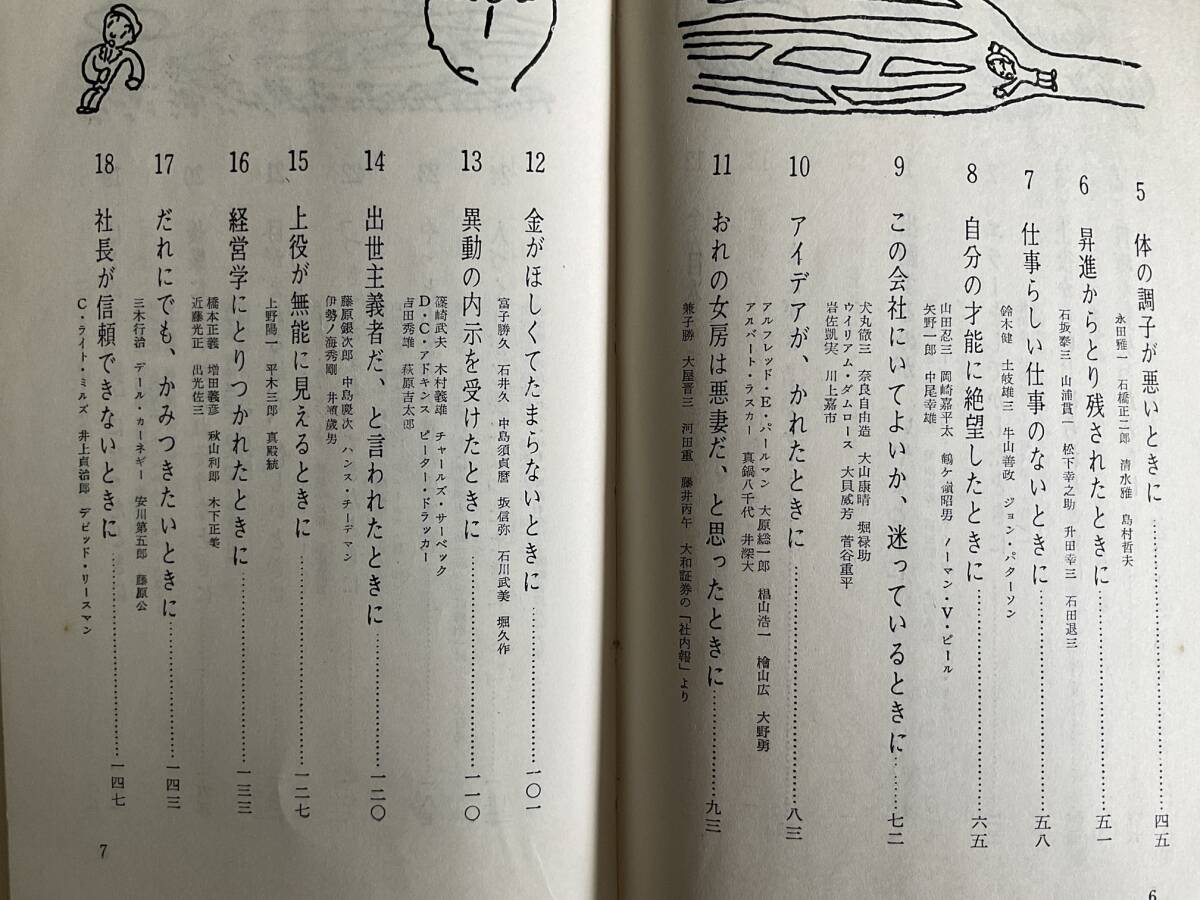 5 体の調子が悪いときに……四五
永田雅一 石橋正二郎 清水雅 島村哲夫
6 昇進からとり残されたときに……五一
石坂泰三 山浦貫一 松下幸之助 升田幸三 石田退三
7 仕事らしい仕事のないときに……五八
鈴木健 土岐雄三 牛山善政 ジョン・パターソン
8 自分の才能に絶望したときに……六五
山田忍三 岡崎嘉平太 鶴ケ嶺昭男 ノーマン・V・ピール
矢野一郎 中尾幸雄
9 この会社にいてよいか、迷っているときに……七二
犬丸徹三 奈良自由造 大山康晴 堀禄助
ウイリアム・ダムロース 大貝威芳 菅谷重平
岩佐凱実 川上嘉市
10 アイデアが、かれたときに……八三
アルフレッド・E・パールマン 大原総一郎 椙山浩一 檜山広 大野勇
アルバート・ラスカー 真鍋八千代 井深大
11 おれの女房は悪妻だ、と思ったときに……九三
兼子勝 大屋晋三 河田重 藤井丙午 大和証券の「社内報」より
6
12 金がほしくてたまらないときに……一〇一
富子勝久 石井久 中島須貞麿 坂信弥 石川武美 堀久作
13 異動の内示を受けたときに……一一〇
篠崎武夫 木村義雄 チャールズ・サーベック
D・C・アドキンス ピーター・ドラッカー
吉田秀雄 萩原吉太郎
14 出世主義者だ、と言われたときに……一二〇
藤原銀次郎 中島慶次 ハンス・チーデマン
伊勢ノ海秀剛 井植歳男
15 上役が無能に見えるときに……一二七
上野陽一 平木三郎 真殿統
16 経営学にとりつかれたときに……一三三
橋本正義 増田義彦 秋山利郎 木下正美
近藤光正 出光佐三
17 だれにでも、かみつきたいときに……一四三
三木行治 デール・カーネギー 安川第五郎 藤原公
18 社長が信頼できないときに……一四七
C・ライト・ミルズ 井上貞治郎 デビッド・リースマン
7